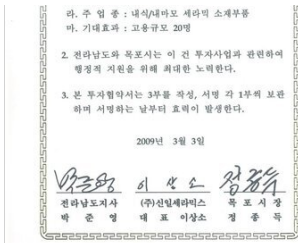 라. 주 업 종 : 내식/내마모 세라믹 소재부품
마. 기대효과 : 고용규모 20명
2. 전라남도와 목포시는 이 건 투자사업과 관련하여
행정적 지원을 위해 최대한 노력한다.
3. 본 투자협약서는 3부를 작성, 서명 각 1부씩 보관
하며 서명하는 날부터 효력이 발생한다.
2009년 3월 3일
이 상 소
전라남도지사 (주)신일세라믹스 목 포 시 장
박 준 영 대 표 이상소 정 종 득